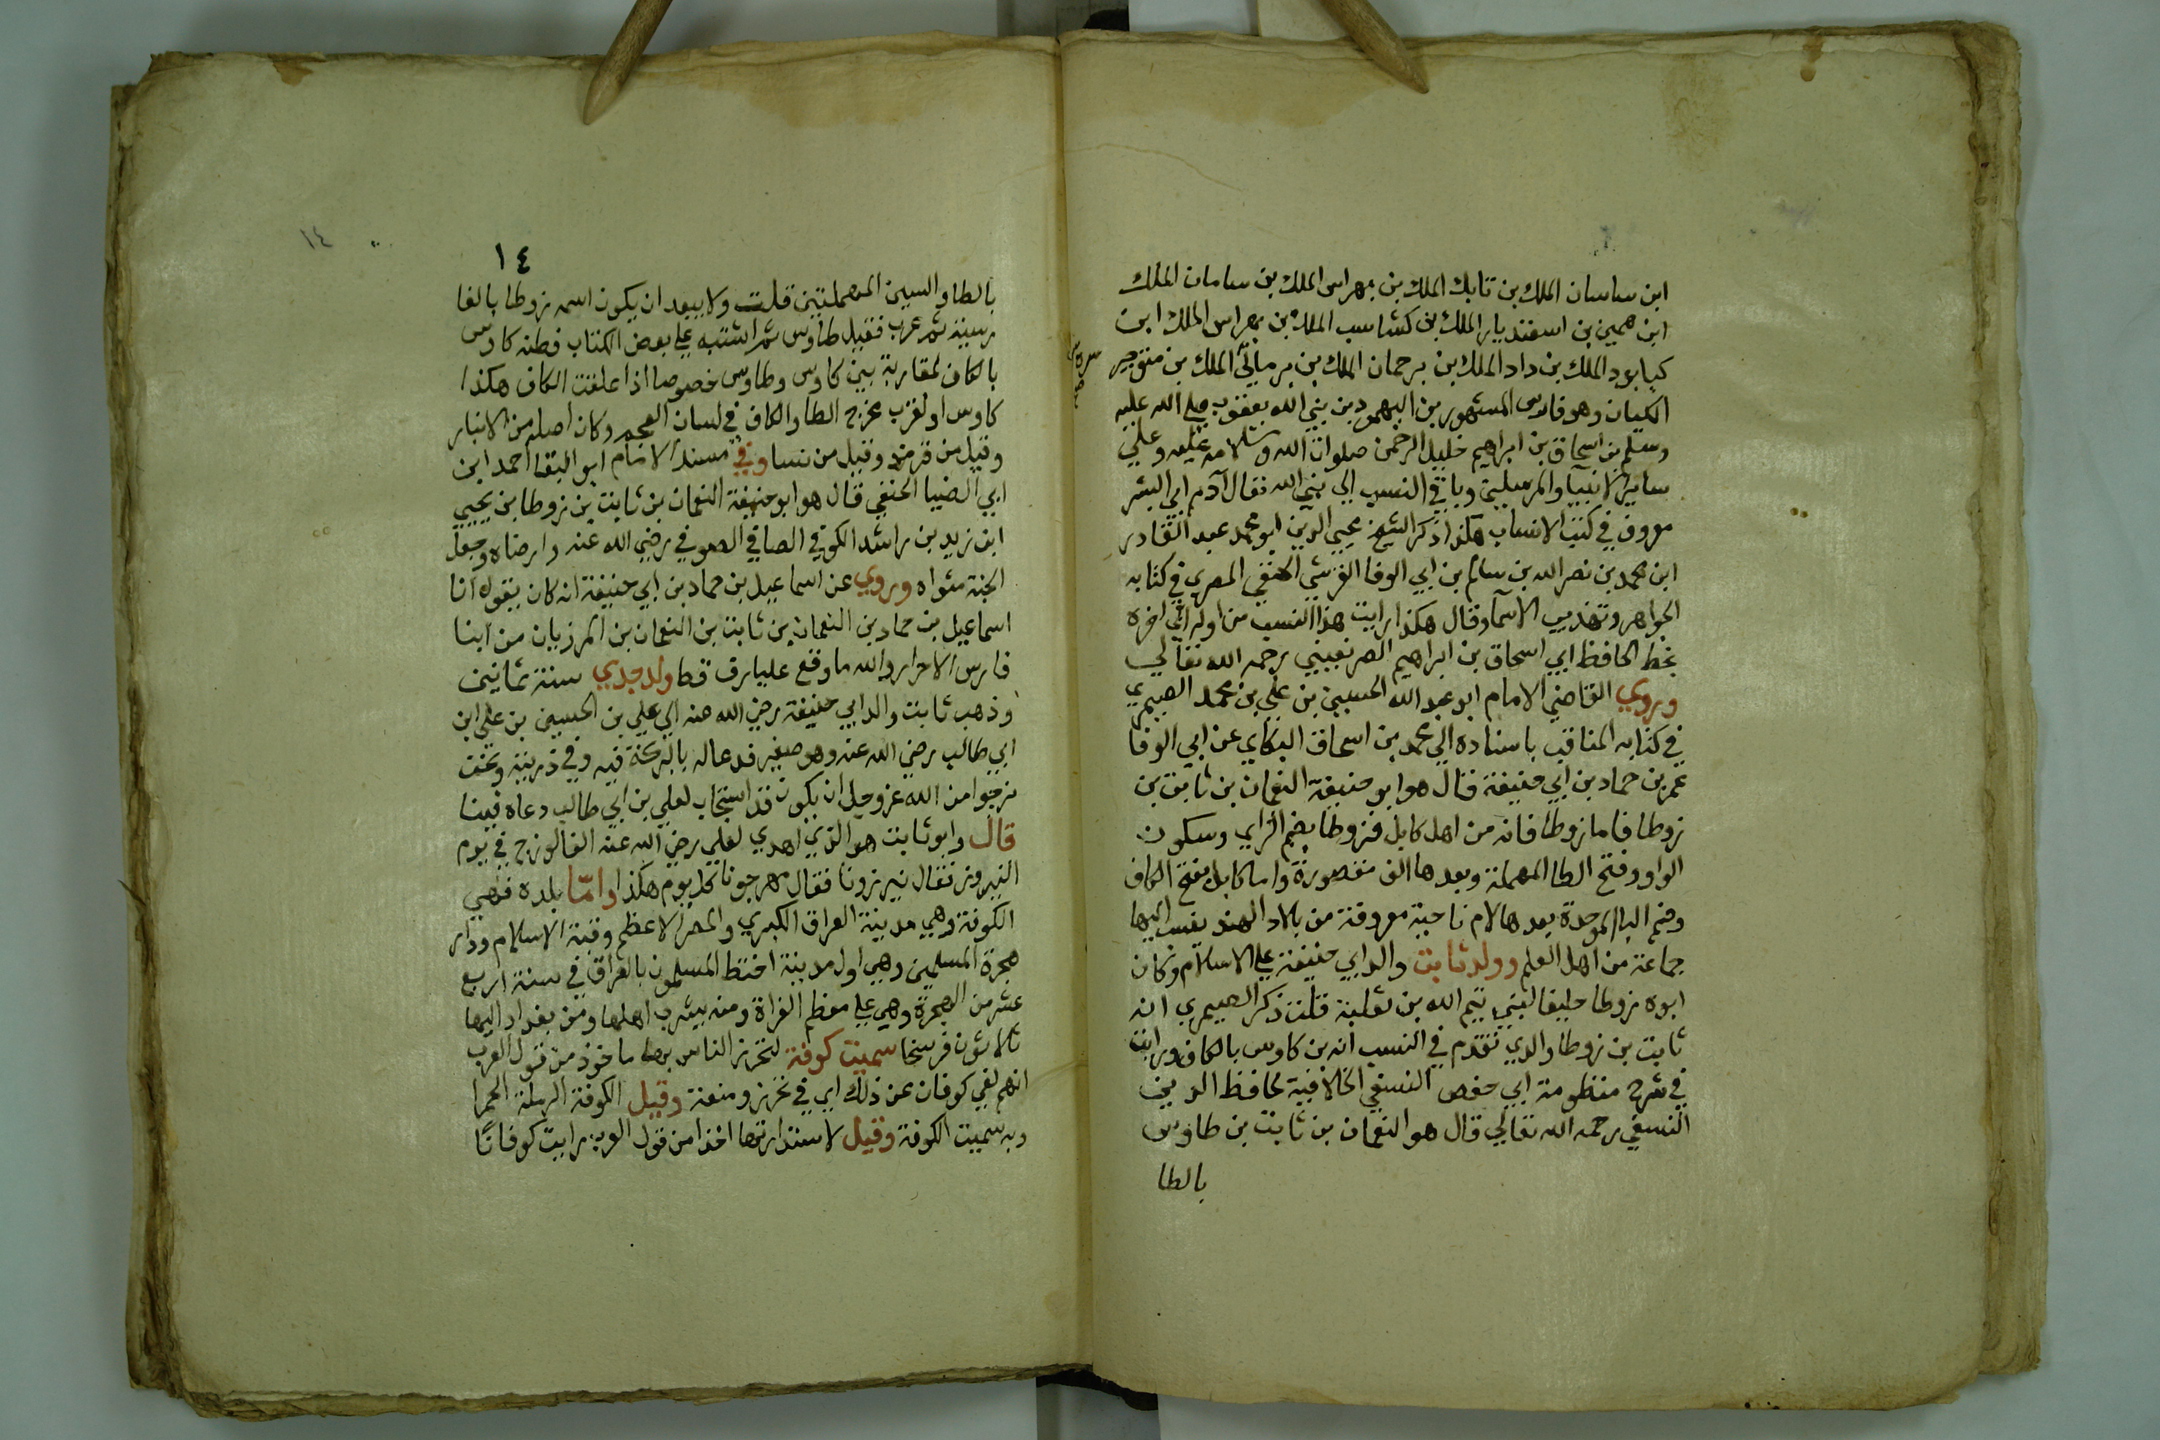 ابن ساسان الملك بن تابك الملك بن مهراس الملك بن ساسان الملك
ابن همين بن اسفنديار الملك بن كشاسب الملك بن مهراس الملك ابن
كيابود الملك بن داد الملك بن برحمان الملك بن برمياني الملك بن منوجهر
الكيان وهو فارس المشهور بن اليهود بن نبي الله يعقوب صلى الله عليه
وسلم بن اسحاق بن ابراهيم خليل الرحمن صلوات الله وسلامه عليه وعلي
ساير الانبيا والمرسلين وباقي النسب الي نبي الله تعالى آدم ابي البشر
معروف في كتب الانساب هكذا ذكر الشيخ محيي الدين ابو محمد عبد القادر
ابن محمد بن نصر الله بن سالم بن ابي الوفا القرشي الحنفي المصري في كتابه
الجواهر وتهذيب الاسماء وقال هكذا رايت هذا النسب من اوله الي اخره
بخط الحافظ ابي اسحاق بن ابراهيم الصريفيني رحمه الله تعالي
وروي القاضي الامام ابو عبد الله الحسين بن علي بن محمد الصيمري
في كتابه المناقب باسناده الي محمد بن اسحاق البكاي عن ابي الوفا
عمر بن حماد بن ابي حنيفة قال هو ابو حنيفة النعمان بن ثابت بن
زوطا فاما زوطا فانه من اهل كابل فزوطا بضم الزاي وسكون
الواو وفتح الطا المهملة وبعدها الف مقصورة واما كابل بفتح الكاف
وضم البا الموحدة بعدها لام ناحية معروفة من بلاد الهند ينسب اليها
جماعة من اهل العلم وولد ثابت والد ابي حنيفة علي الاسلام وكان
ابوه زوطا حليفا لبني تيم الله بن ثعلبة قلت ذكر الصيمري انه
ثابت بن زوطا والذي تقدم في النسب انه بن كاوس بالكاف ورايت
في شرح منظومة ابي حفص النسفي الخلافية لحافظ الدين
النسفي رحمه الله تعالي قال هو النعمان بن ثابت بن طاوس
بالطا
١٤
١٤
بالطا والسين المهملتين قلت ولا يبعد ان يكون اسمه زوطا بالفا
رسية ثم عرب فقيل طاوس ثم اشتبه علي بعض الكتاب فظنه كاوس
بالكاف لمقاربة بين كاوس وطاوس خصوصا اذا علقت الكاف هكذا
كاوس او لقرب مخرج الطا والكاف في لسان العجم وكان اصله من الانبار
وقيل من ترمذ وقيل من نسا وفي مسند الامام ابو البقا احمد ابن
ابي الضيا الحنفي قال هو ابو حنيفة النعمان بن ثابت بن زوطا بن يحيي
ابن زيد بن راشد الكوفي الصافي الصوفي رضي الله عنه وارضاه وجعل
الجنة مثواه وروي عن اسماعيل بن حماد بن ابي حنيفة انه كان يقول انا
اسماعيل بن حماد بن النعمان بن ثابت بن النعمان بن المرزبان من ابنا
فارس الاحرار والله ما وقع علينا رق قط ولد جدي سنة ثمانين
وذهب ثابت والد ابي حنيفة رضي الله عنه الي علي بن الحسين بن علي ابن
ابي طالب رضي الله عنه وهو صغير فدعا له بالبركة فيه وفي ذريته ونحن
نرجوا من الله عز وجل ان يكون قد استجاب لعلي بن ابي طالب دعاه فينا
قال وابو ثابت هو الذي اهدي لعلي رضي الله عنه الفالوذج في يوم
النيروز فقال نيرزونا فقال مهرجونا كل يوم هكذا واما بلده فهي
الكوفة وهي مدينة العراق الكبري والمصر الاعظم وقبة الاسلام ودار
هجرة المسلمين وهي اول مدينة اختط المسلمون بالعراق في سنة اربع
عشر من الهجرة وهي علي معظم الفراة ومنه يشرب اهلها ومن بغداد اليها
ثلاثون فرسخا سميت كوفة لتحرز الناس بها ماخوذ من قول العرب
انهم لفي كوفان عن ذلك اي في تحرز ومنعة وقيل الكوفة الرملة الحمرا
وبه سميت الكوفة وقيل لاستدارتها اخذا من قول العرب رايت كوفانا